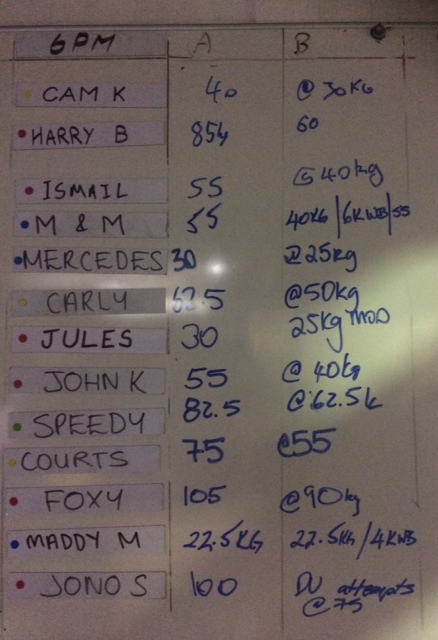 6PM A B
CAM K 40 @ 30KG
HARRY B 85 60
ISMAIL 55 @ 40kg
M & M 55 40KG | 6KWB | 55
MERCEDES 30 @25kg
CARLY 62.5 @50kg
JULES 30 25Kg MOD
JOHN K 55 @ 40kg
SPEEDY 82.5 @ 62.5k
COURTS 75 @55
FOXY 105 @90kg
MADDY M 22.5KG 22.5KG / 4KWB
JONO S 100 DU attempts
@ 75